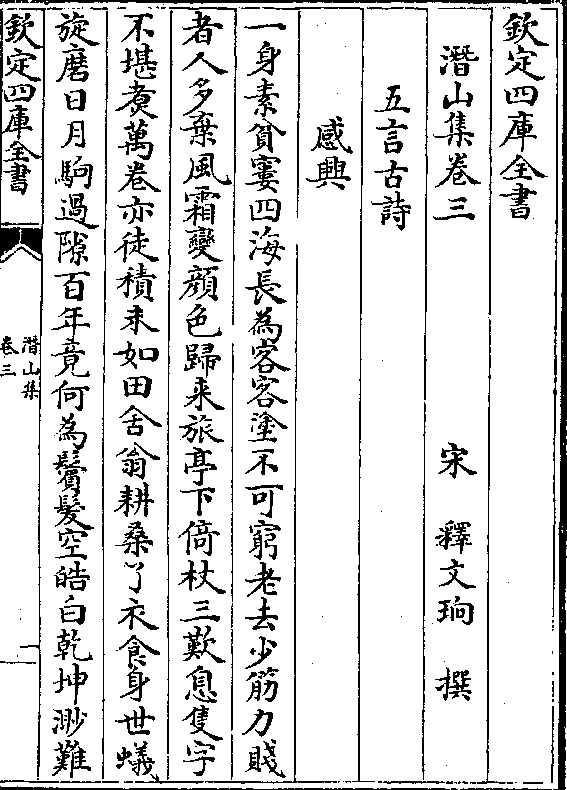 欽定四庫全書
潛山集卷三 宋 釋文珦 撰
五言古詩
感興
一身素貧窶四海長為客客塗不可窮老去少筋力賤
者人多棄風霜變顔色歸来旅亭下倚杖三歎息隻字
不堪煑萬卷亦徒積未如田舎翁耕桑了衣食身世蟻
旋磨日月駒過隙百年竟何為鬢髮空皓白乾坤渺難
欽定四庫全書
潛山集
卷三
一